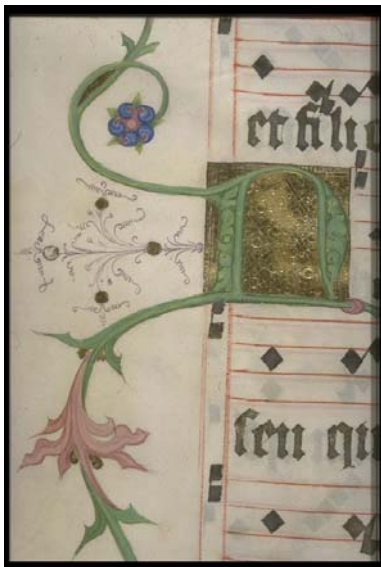 et filio
seu qu